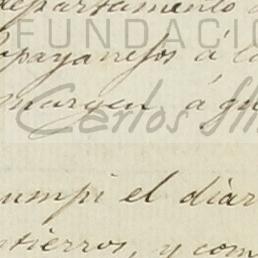 departamento
FUNDACIÓ
opayanejos á la
margen á gu
Carlos Sli
umpi el diar
ntierros, y com